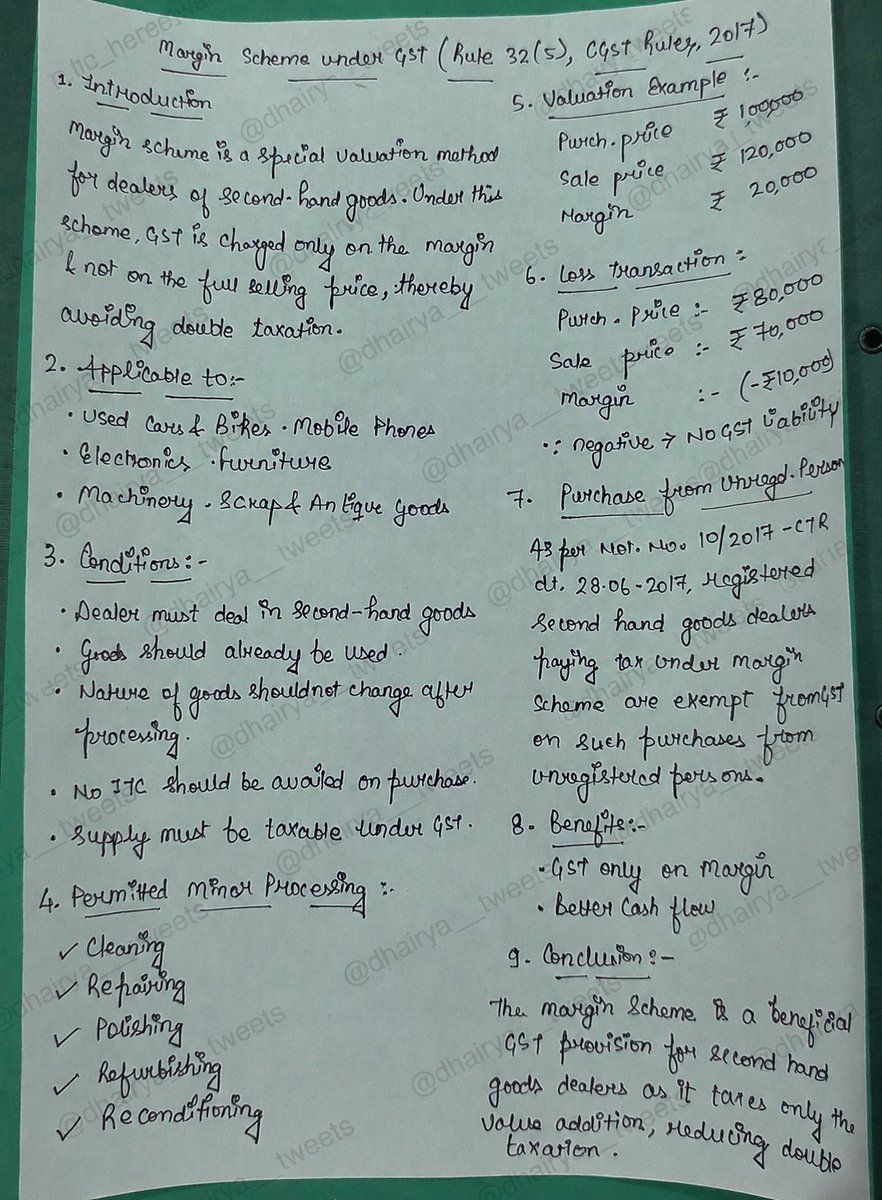 Margin Scheme under GST (Rule 32(5), CGST Rules, 2017)
1. Introduction
Margin scheme is a special valuation method
for dealers of second-hand goods. Under this
scheme, GST is charged only on the margin
& not on the full selling price, thereby
avoiding double taxation.
2. Applicable to:-
• Used Cars & Bikes • Mobile Phones
• Electronics • furniture
• Machinery • Scrap & Antique goods
3. Conditions:-
• Dealer must deal in second-hand goods
• Goods should already be used.
• Nature of goods should not change after
processing.
• No ITC should be availed on purchase.
• Supply must be taxable under GST.
4. Permitted Minor Processing :-
✓ Cleaning
✓ Repairing
✓ Polishing
✓ Refurbishing
✓ Reconditioning
5. Valuation Example :-
Purch. price ₹ 1,00,000
Sale price ₹ 120,000
Margin ₹ 20,000
6. Loss transaction :-
Purch. Price :- ₹80,000
Sale price :- ₹70,000
Margin :- (-₹10,000)
∵ negative → No GST Liability
7. Purchase from Unregd. Person
As per Not. No. 10/2017-CTR
dt. 28.06-2017, registered
second hand goods dealers
paying tax under margin
scheme are exempt from GST
on such purchases from
unregistered persons.
8. Benefits:-
• GST only on Margin
• Better Cash flow
9. Conclusion:-
The margin scheme is a beneficial
GST provision for second hand
goods dealers as it taxes only the
value addition, reducing double
taxation.
@dhairya__tweets